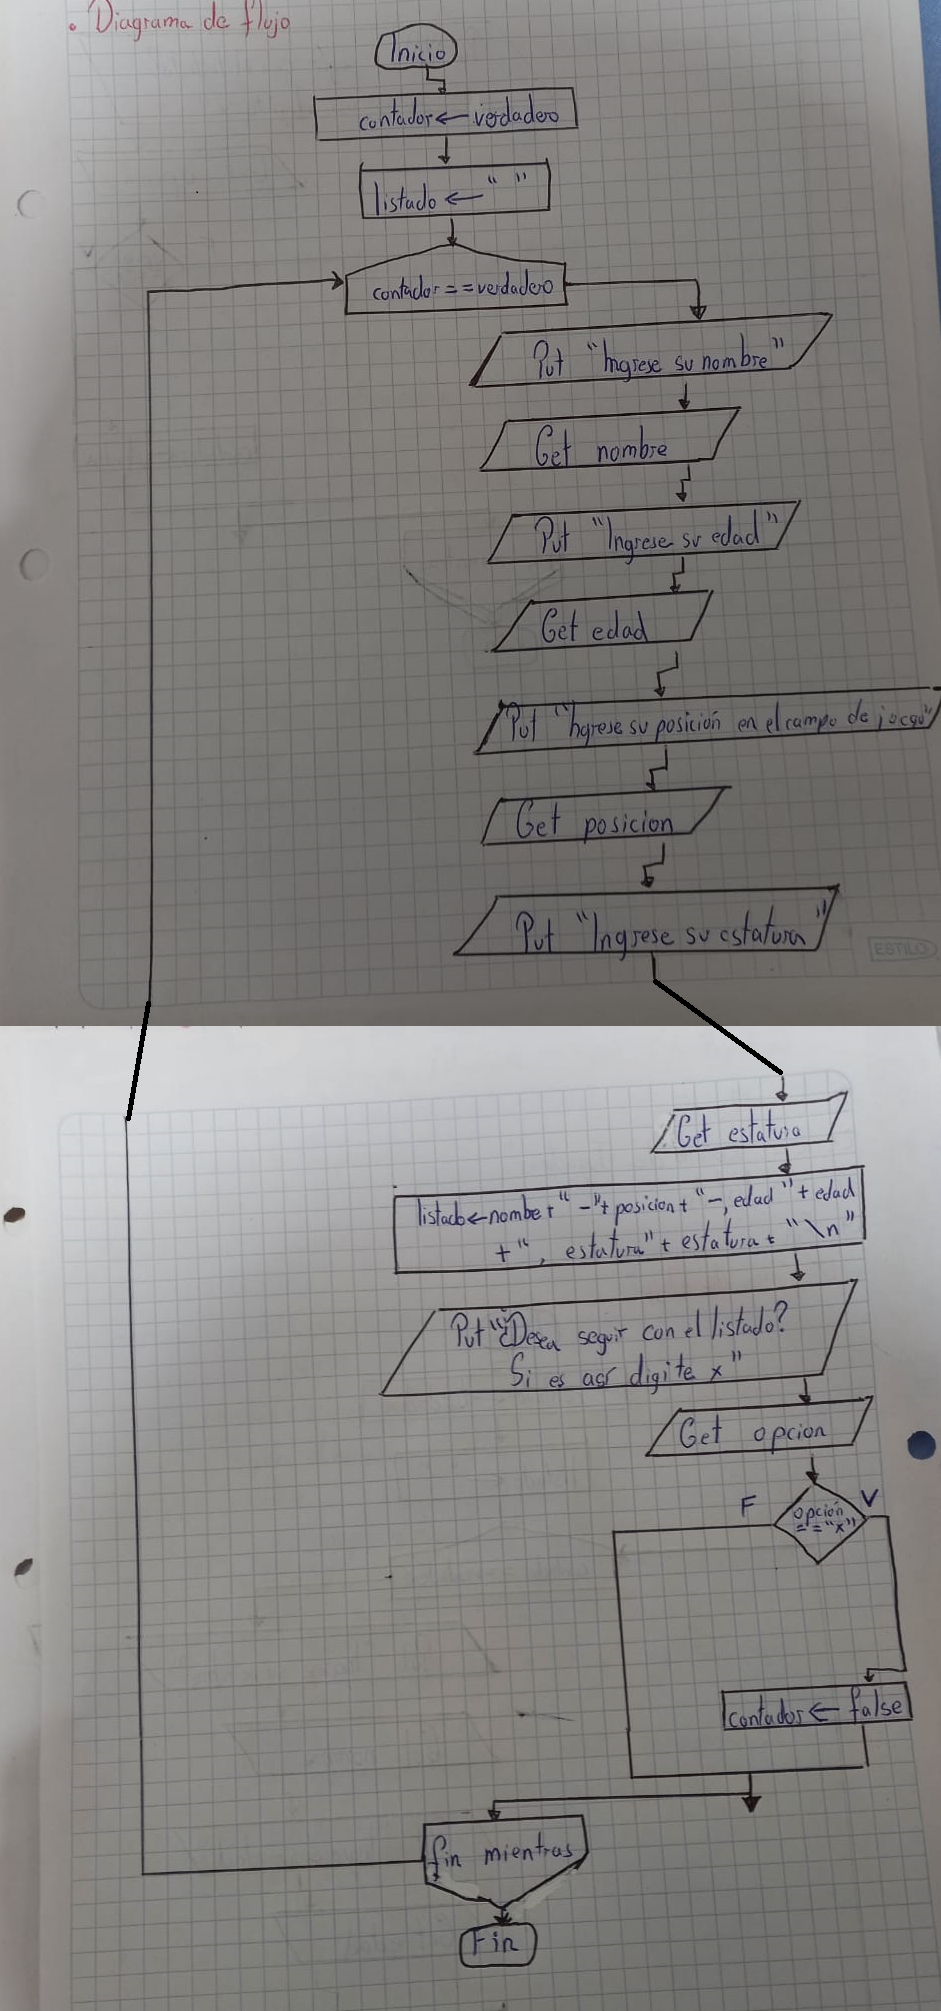 • Diagrama de flujo
Inicio
contador ← verdadero
listado ← " "
contador == verdadero
Put "Ingrese su nombre"
Get nombre
Put "Ingrese su edad"
Get edad
Put "Ingrese su posición en el campo de juego"
Get posicion
Put "Ingrese su estatura"
ESTILO
Get estatura
listado ← nombe + " - " + posicion + " -, edad " + edad
+ " , estatura" + estatura + " \n "
Put "¿Desea seguir con el listado?
Si es así digite x"
Get opcion
F
V
opción
== "x"
contador ← false
fin mientras
Fin